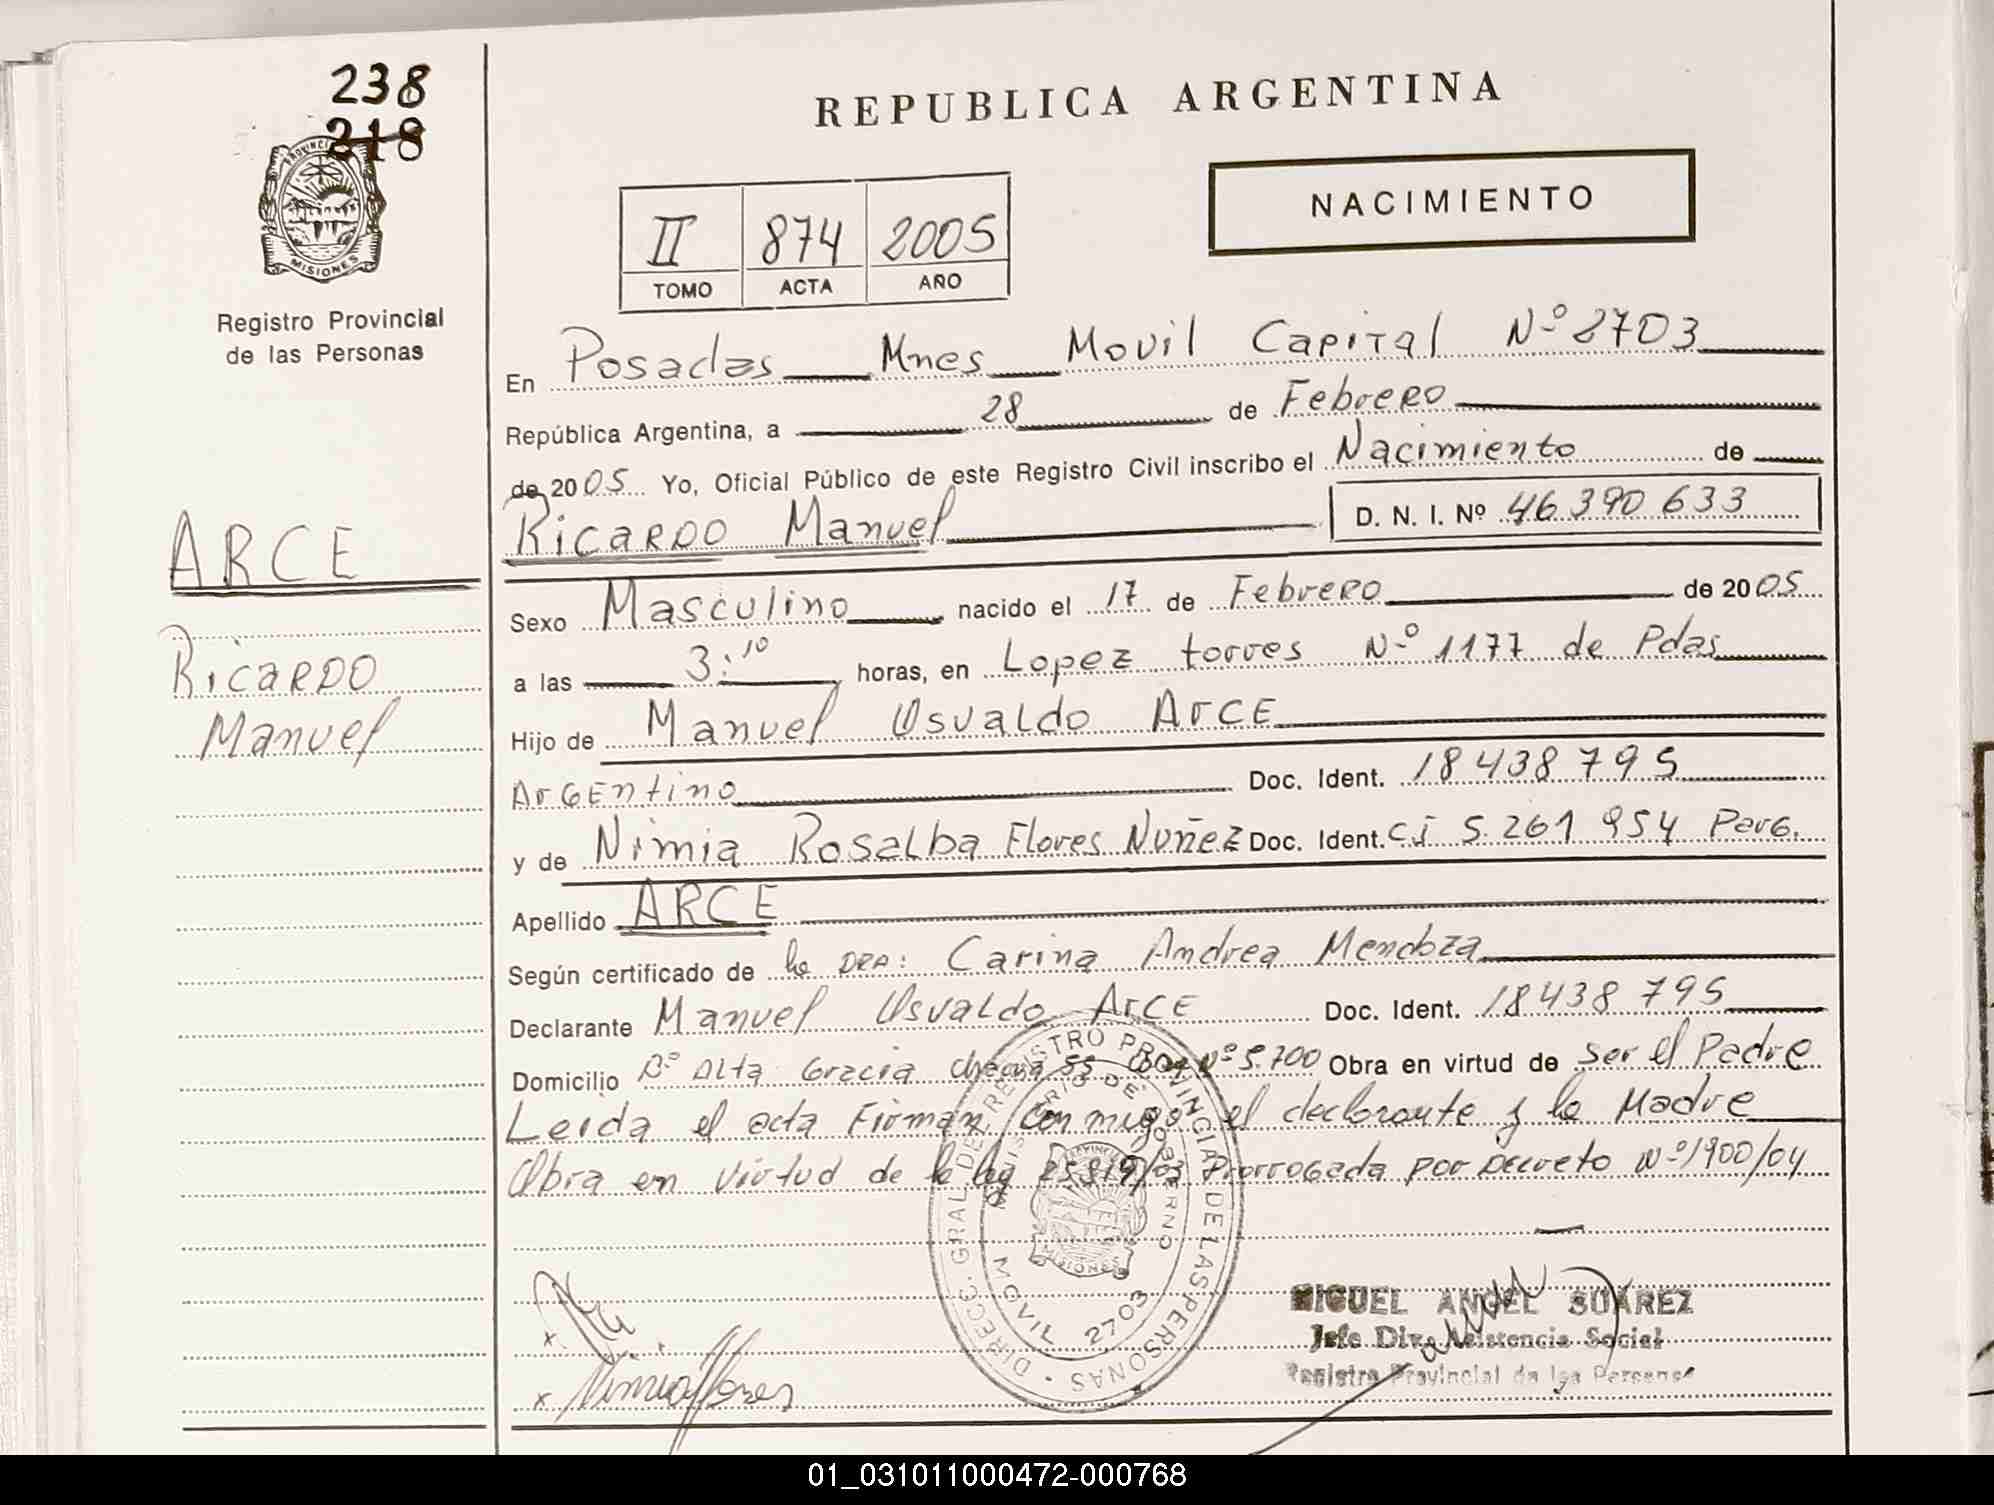 238
218
PROVINCIA
MISIONES
Registro Provincial
de las Personas
REPUBLICA ARGENTINA
NACIMIENTO
II 874 2005
TOMO ACTA AÑO
En Posadas Mnes Movil Capital Nº 2703
República Argentina, a 28 de Febrero
de 2005 Yo, Oficial Público de este Registro Civil inscribo el Nacimiento de
Ricardo Manuel D. N. I. Nº 46 390 633
ARCE
Ricardo
Manuel
Sexo Masculino nacido el 17 de Febrero de 2005
a las 3:10 horas, en Lopez torres Nº 1177 de Pdas
Hijo de Manuel Osvaldo Arce
Argentino Doc. Ident. 18 438 795
y de Nimia Rosalba Flores Nuñez Doc. Ident. C.I 5.261 954 Parg.
Apellido ARCE
Según certificado de la DRA: Carina Andrea Mendoza
Declarante Manuel Osvaldo Arce Doc. Ident. 18 438 795
Domicilio Bº Alta Gracia chacra 55 Nº 5.700 Obra en virtud de ser el Padre
Leida el acta Firman conmigo el declarante y la Madre
Obra en virtud de la ley 25819/03 Prorrogada por Decreto Nº 1900/04
DIRECC. GRAL. DE REGISTRO PROVINCIAL DE LAS PERSONAS
MINISTERIO DE GOBIERNO
MOVIL 2703
MISIONES
MIGUEL ANGEL SUAREZ
Jefe Div. Asistencia Social
Registro Provincial de las Personas
x
x Nimia Flores
01_031011000472-000768